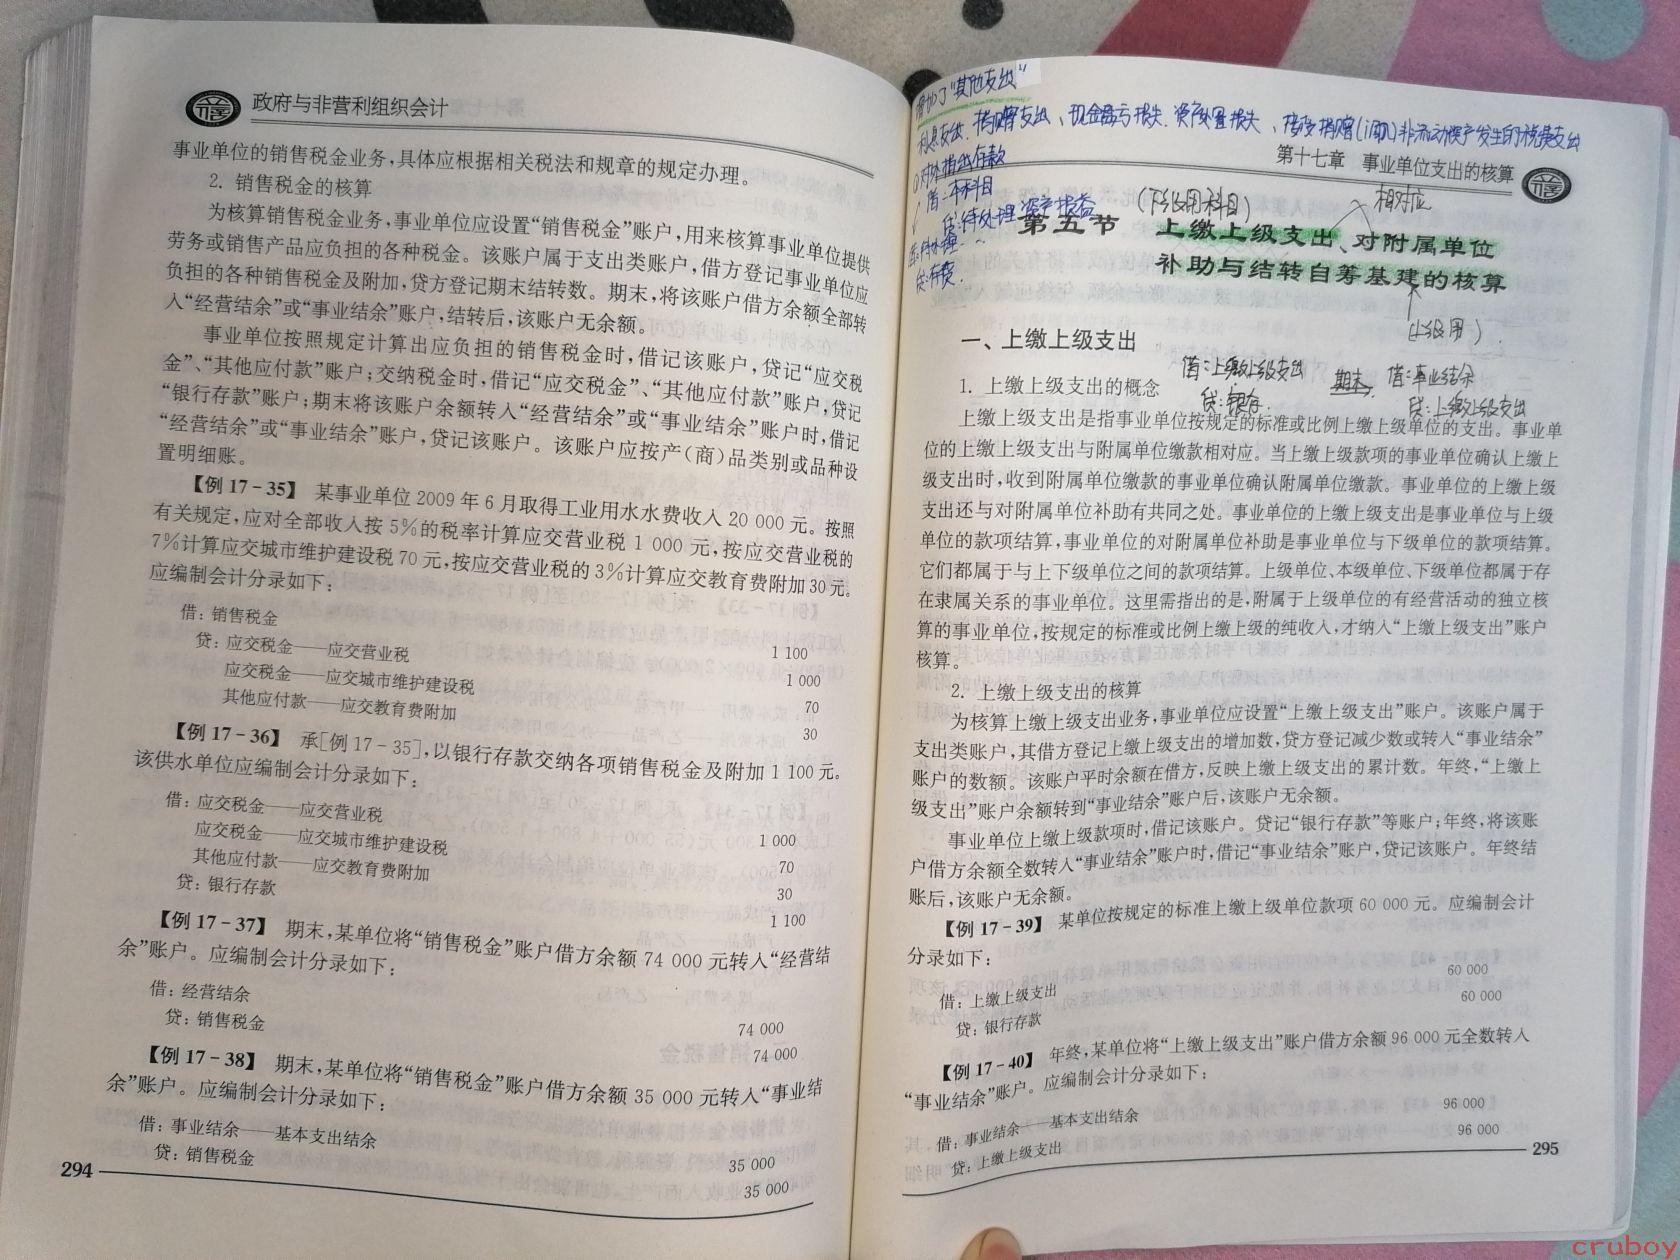 政府与非营利组织会计
事业单位的销售税金业务,具体应根据相关税法和规章的规定办理。
2. 销售税金的核算
为核算销售税金业务,事业单位应设置“销售税金”账户,用来核算事业单位提供
劳务或销售产品应负担的各种税金。该账户属于支出类账户,借方登记事业单位应
负担的各种销售税金及附加,贷方登记期末结转数。期末,将该账户借方余额全部转
入“经营结余”或“事业结余”账户,结转后,该账户无余额。
事业单位按照规定计算出应负担的销售税金时,借记该账户,贷记“应交税
金”、“其他应付款”账户;交纳税金时,借记“应交税金”、“其他应付款”账户,贷记
“银行存款”账户;期末将该账户余额转入“经营结余”或“事业结余”账户时,借记
“经营结余”或“事业结余”账户,贷记该账户。该账户应按产(商)品类别或品种设
置明细账。
【例 17-35】 某事业单位 2009 年 6 月取得工业用水水费收入 20 000 元。按照
有关规定,应对全部收入按 5%的税率计算应交营业税 1 000 元,按应交营业税的
7%计算应交城市维护建设税 70 元,按应交营业税的 3%计算应交教育费附加 30 元。
应编制会计分录如下:
借: 销售税金 1 100
贷: 应交税金——应交营业税 1 000
应交税金——应交城市维护建设税 70
其他应付款——应交教育费附加 30
【例 17-36】 承[例 17-35],以银行存款交纳各项销售税金及附加 1 100 元。
该供水单位应编制会计分录如下:
借: 应交税金——应交营业税 1 000
应交税金——应交城市维护建设税 70
其他应付款——应交教育费附加 30
贷: 银行存款 1 100
【例 17-37】 期末,某单位将“销售税金”账户借方余额 74 000 元转入“经营结
余”账户。应编制会计分录如下:
借: 经营结余 74 000
贷: 销售税金 74 000
【例 17-38】 期末,某单位将“销售税金”账户借方余额 35 000 元转入“事业结
余”账户。应编制会计分录如下:
借: 事业结余——基本支出结余 35 000
贷: 销售税金 35 000
294
增加了“其他支出”
利息支出、捐赠支出、现金盘亏损失、资产处置损失、接受捐赠(调入)非流动资产发生的税费支出
对外捐出存款
借:本科目
贷:待处理资产损益
贷:存货.
第十七章 事业单位支出的核算
(下级用科目)
相对应
第五节 上缴上级支出、对附属单位
补助与结转自筹基建的核算
(上级用)
一、上缴上级支出
借:上缴上级支出
贷:银存.
期末
借:事业结余
贷:上缴上级支出
1. 上缴上级支出的概念
上缴上级支出是指事业单位按规定的标准或比例上缴上级单位的支出。事业单
位的上缴上级支出与附属单位缴款相对应。当上缴上级款项的事业单位确认上缴上
级支出时,收到附属单位缴款的事业单位确认附属单位缴款。事业单位的上缴上级
支出还与对附属单位补助有共同之处。事业单位的上缴上级支出是事业单位与上级
单位的款项结算,事业单位的对附属单位补助是事业单位与下级单位的款项结算。
它们都属于与上下级单位之间的款项结算。上级单位、本级单位、下级单位都属于存
在隶属关系的事业单位。这里需指出的是,附属于上级单位的有经营活动的独立核
算的事业单位,按规定的标准或比例上缴上级的纯收入,才纳入“上缴上级支出”账户
核算。
2. 上缴上级支出的核算
为核算上缴上级支出业务,事业单位应设置“上缴上级支出”账户。该账户属于
支出类账户,其借方登记上缴上级支出的增加数,贷方登记减少数或转入“事业结余”
账户的数额。该账户平时余额在借方,反映上缴上级支出的累计数。年终,“上缴上
级支出”账户余额转到“事业结余”账户后,该账户无余额。
事业单位上缴上级款项时,借记该账户。贷记“银行存款”等账户;年终,将该账
户借方余额全数转入“事业结余”账户时,借记“事业结余”账户,贷记该账户。年终结
账后,该账户无余额。
【例 17-39】 某单位按规定的标准上缴上级单位款项 60 000 元。应编制会计
分录如下:
借: 上缴上级支出 60 000
贷: 银行存款 60 000
【例 17-40】 年终,某单位将“上缴上级支出”账户借方余额 96 000 元全数转入
“事业结余”账户。应编制会计分录如下:
借: 事业结余——基本支出结余 96 000
贷: 上缴上级支出 96 000
295
cruboy